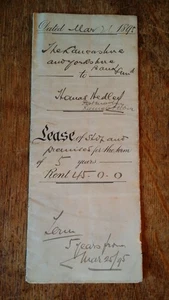 Dated Mar 1895
The Lancashire
and Yorkshire
Bank Limd
to
Thomas Hedley
Lease of Shop and
premises for the term
of 5 years
Rent 45-0-0
Term
5 Years from
Mar 25/95